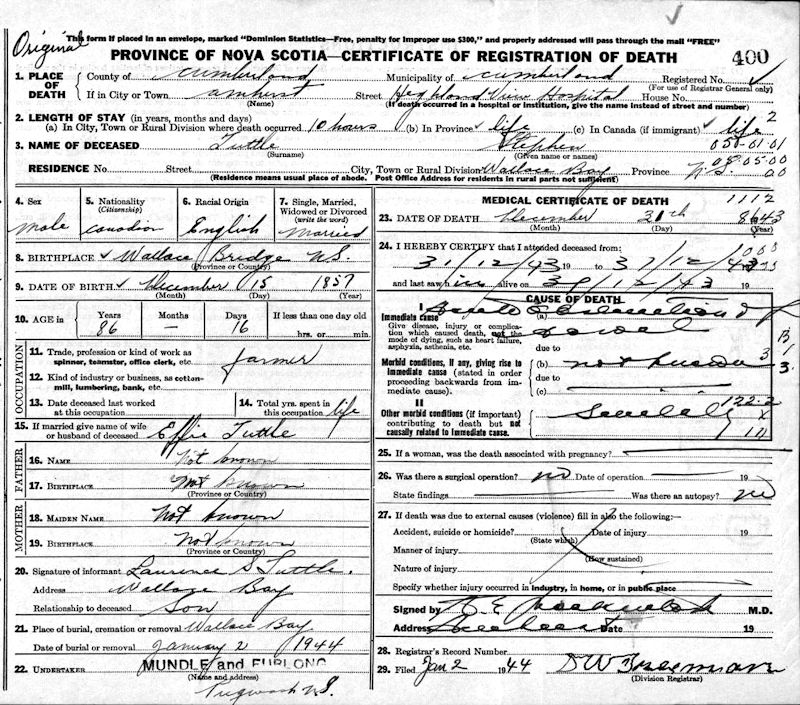 Original
This form if placed in an envelope, marked "Dominion Statistics—Free, penalty for improper use $300," and properly addressed will pass through the mail "FREE"
PROVINCE OF NOVA SCOTIA—CERTIFICATE OF REGISTRATION OF DEATH 400
1. PLACE OF DEATH { County of Cumberland Municipality of Cumberland Registered No.
(For use of Registrar General only)
If in City or Town Amherst Street Highland View Hospital House No.
(Name) (If death occurred in a hospital or institution, give the name instead of street and number)
2. LENGTH OF STAY (in years, months and days)
(a) In City, Town or Rural Division where death occurred 10 hours (b) In Province life (c) In Canada (if immigrant) life 2
3. NAME OF DECEASED Tuttle Stephen 050-01-01
(Surname) (Given name or names) 08-05-00
RESIDENCE No. Street City, Town or Rural Division Wallace Bay Province N.S. 00
(Residence means usual place of abode. Post Office Address for residents in rural parts not sufficient)
4. Sex 5. Nationality (Citizenship) 6. Racial Origin 7. Single, Married, Widowed or Divorced (write the word)
male Canadian English Married
8. BIRTHPLACE Wallace Bridge N.S.
(Province or Country)
9. DATE OF BIRTH December 15 1857
(Month) (Day) (Year)
10. AGE in Years Months Days If less than one day old
86 — 16 hrs. or min.
OCCUPATION
11. Trade, profession or kind of work as spinner, teamster, office clerk, etc. farmer
12. Kind of industry or business, as cotton-mill, lumbering, bank, etc.
13. Date deceased last worked at this occupation 14. Total yrs. spent in this occupation life
15. If married give name of wife or husband of deceased Effie Tuttle
FATHER
16. NAME Not known
17. BIRTHPLACE Not known
(Province or Country)
MOTHER
18. MAIDEN NAME Not known
19. BIRTHPLACE Not known
(Province or Country)
20. Signature of informant Laurence S Tuttle.
Address Wallace Bay
Relationship to deceased Son
21. Place of burial, cremation or removal Wallace Bay
Date of burial or removal January 2 1944
22. UNDERTAKER MUNDLE and FURLONG
(Name and address)
Pugwash N.S.
MEDICAL CERTIFICATE OF DEATH 1112
23. DATE OF DEATH December 31th 43
(Month) (Day) (Year)
24. I HEREBY CERTIFY that I attended deceased from:
31/12/43 19 to 31/12/43
and last saw him alive on 19
CAUSE OF DEATH
I
Immediate cause (a)
Give disease, injury or complication which caused death, not the mode of dying, such as heart failure, asphyxia, asthenia, etc.
due to
Morbid conditions, if any, giving rise to immediate cause (stated in order proceeding backwards from immediate cause). (b) not known 3
due to
(c)
II 122.2
Other morbid conditions (if important) contributing to death but not causally related to immediate cause. Senility
25. If a woman, was the death associated with pregnancy?
26. Was there a surgical operation? no Date of operation 19
State findings Was there an autopsy? no
27. If death was due to external causes (violence) fill in also the following:—
Accident, suicide or homicide? Date of injury 19
(State which)
Manner of injury
(How sustained)
Nature of injury
Specify whether injury occurred in industry, in home, or in public place
Signed by M.D.
Address Date 19
28. Registrar's Record Number
29. Filed Jan 2 1944
(Division Registrar)